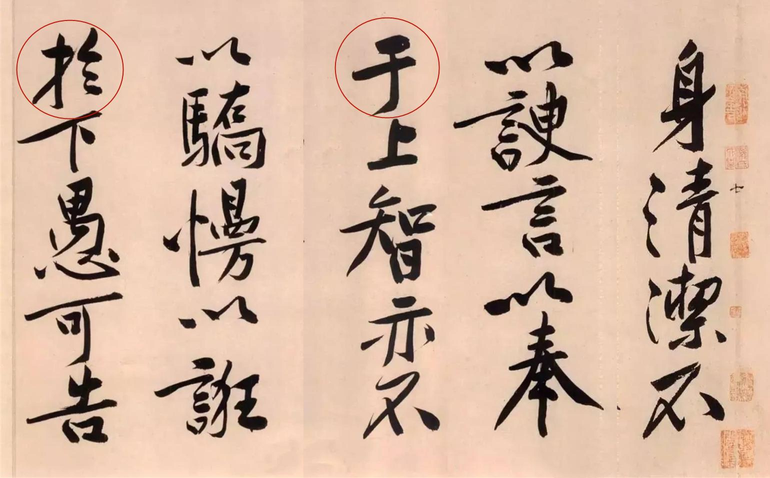 身清潔不
以諛言以奉
于上智亦不
以驕慢以誑
於下愚可告